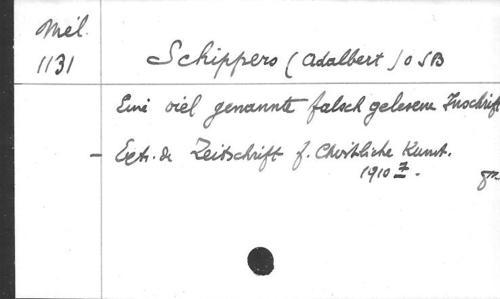 Mél.
1131
Schippers (Adalbert) OSB
Eine viel genannte falsch gelesene Inschrift
- Extr. de Zeitschrift f. Christliche Kunst.
1910 7 -